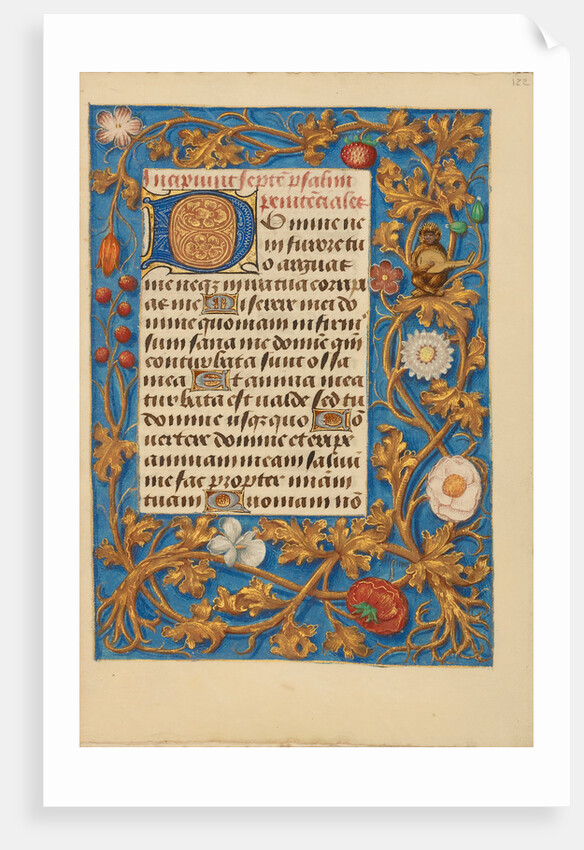 122
Incipiunt septē psalmi
penitēciales
Domine ne
in furore tu
o arguas
me neqz in ira tua corripi
as me Miserere mei do
mine quoniam infirmꝰ
sum sana me domine qm̄
conturbata sunt ossa
mea Et anima mea
turbata est ualde sed tu
domine usqz quo Cō
uertere domine et eripe
animam meam saluū
me fac propter mīam
tuam Quoniam nō